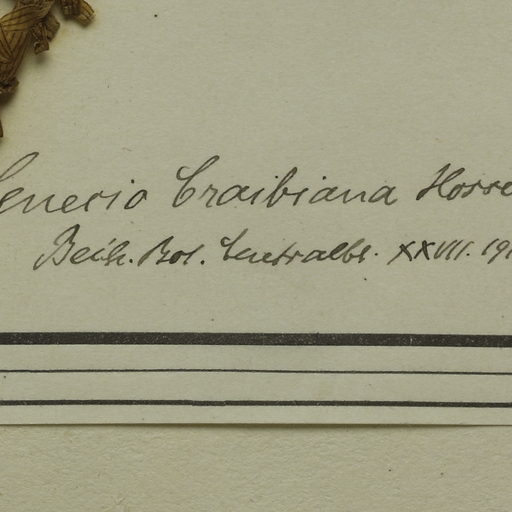 Senecio Craibiana Hosse
Beih. Bot. Centralbl. XXVII. 191